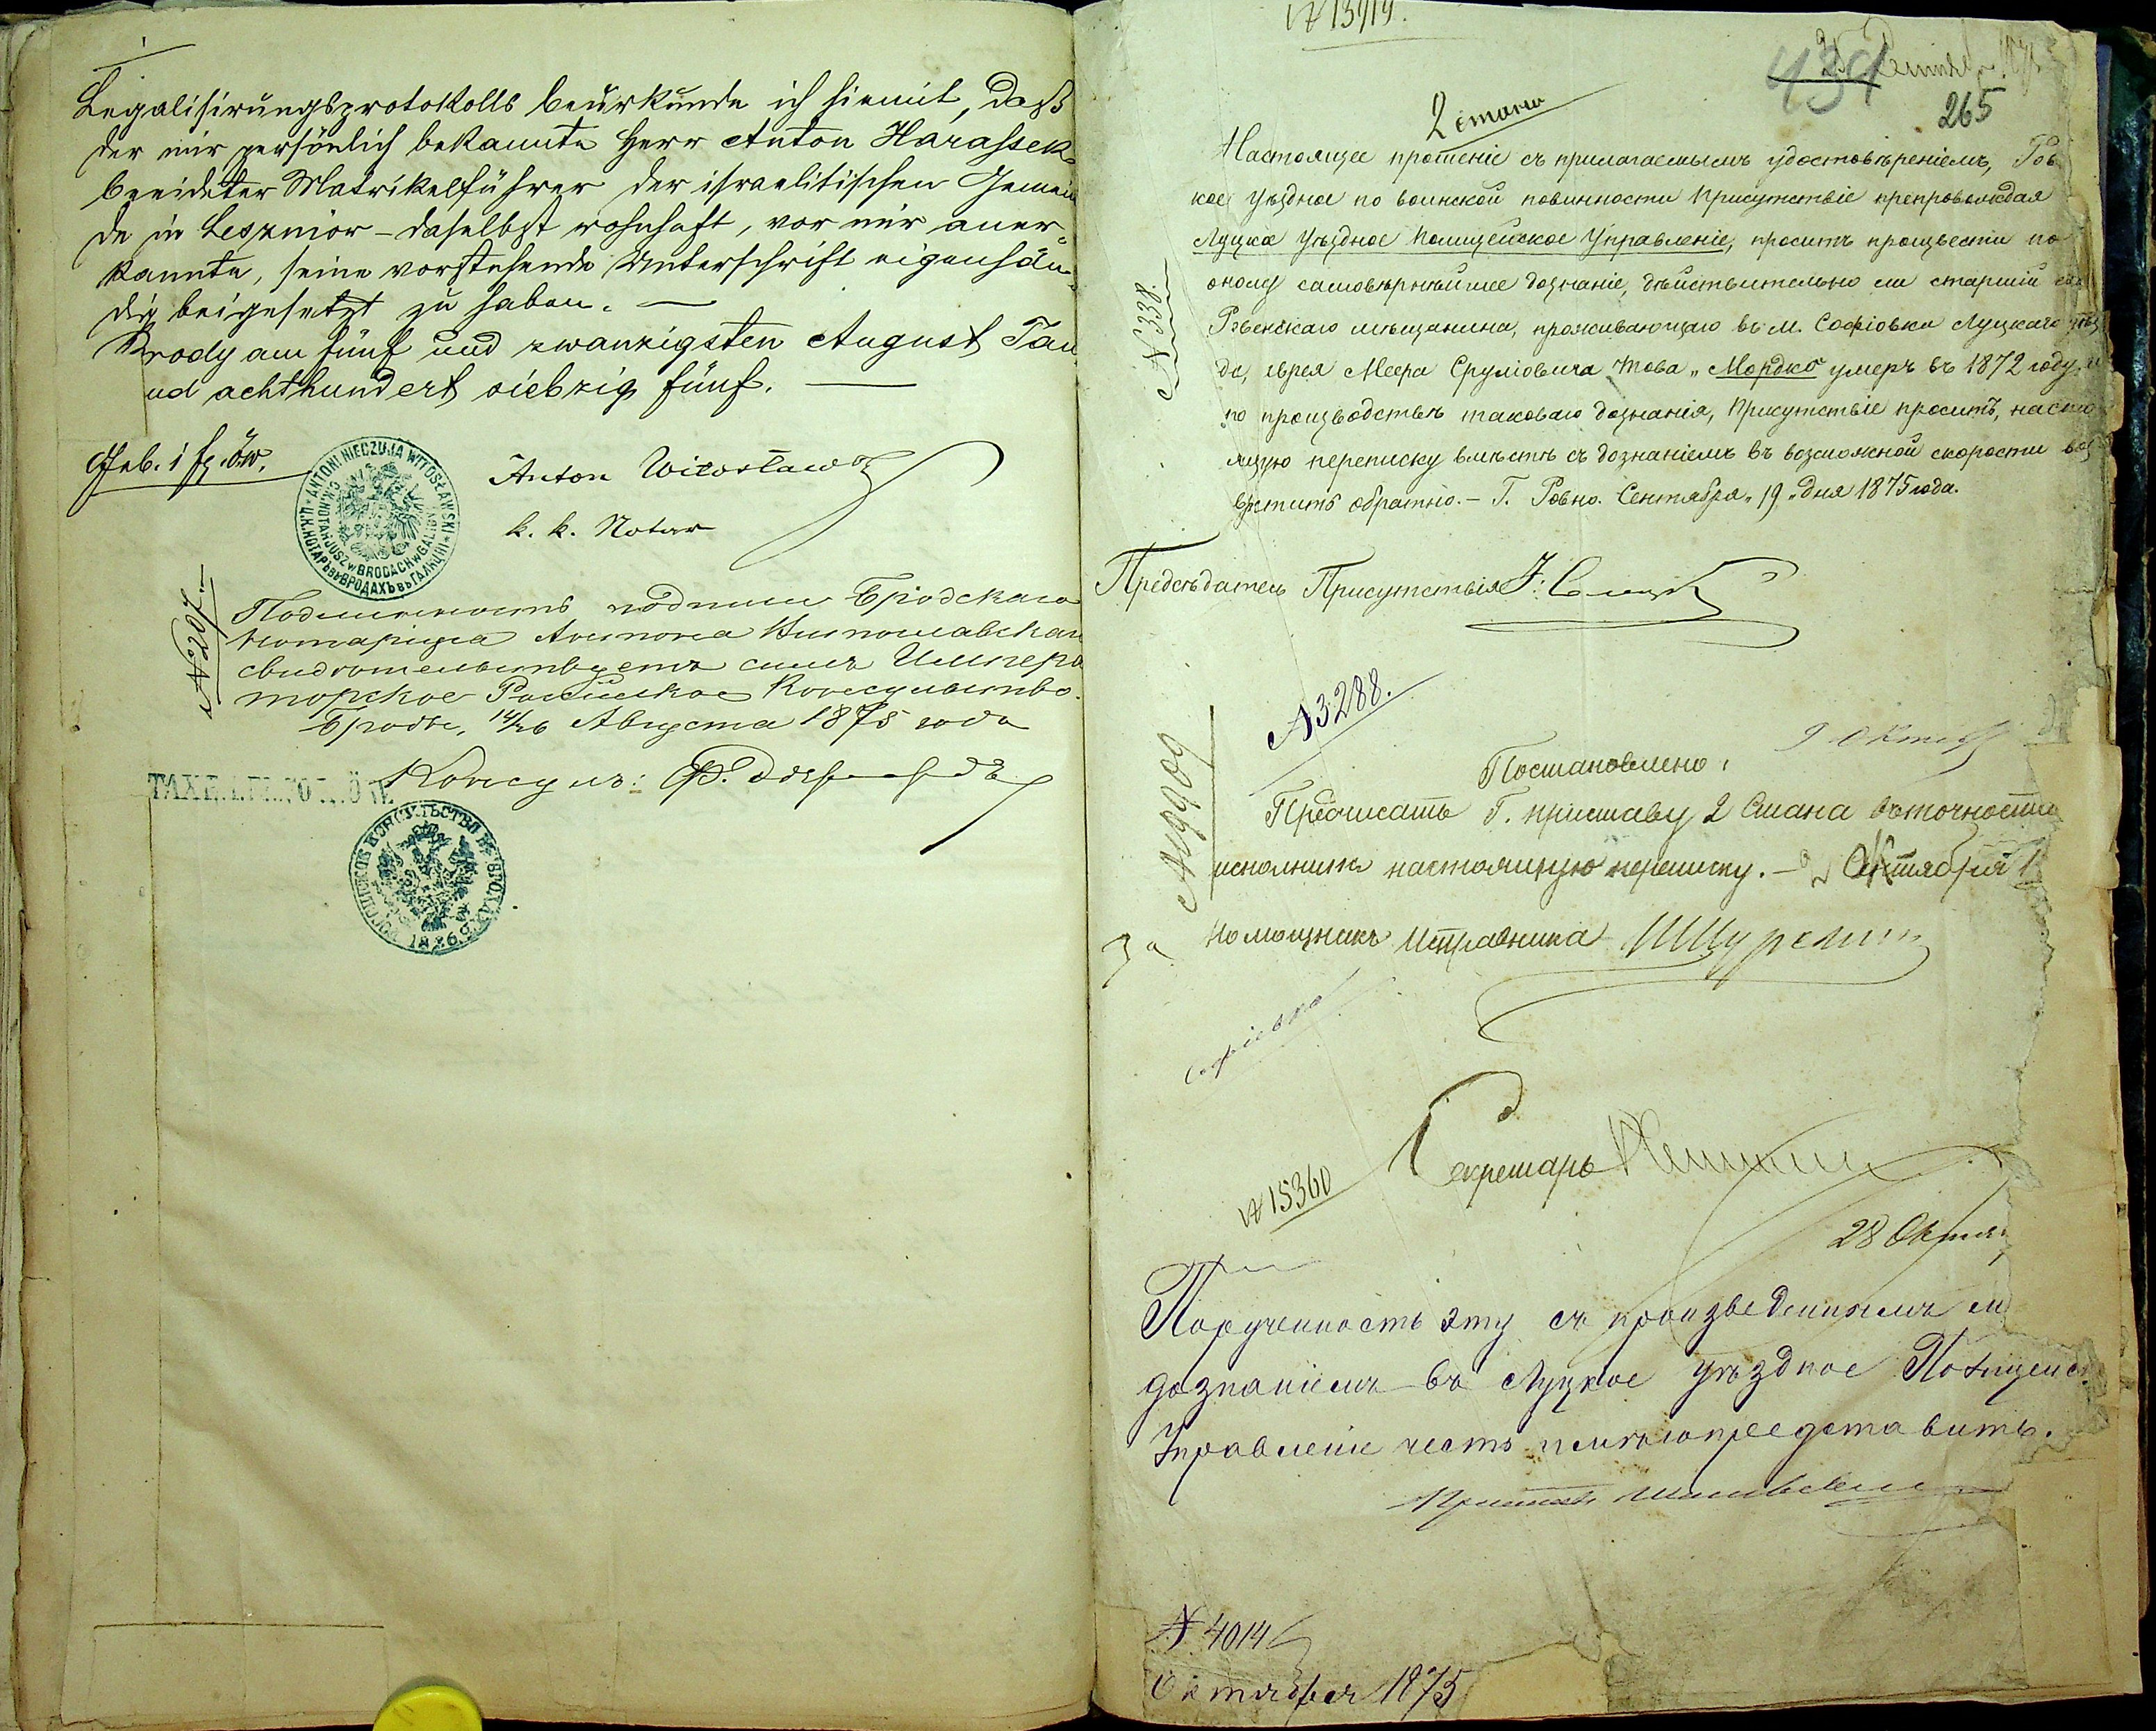 Legalisirungsprotokolls beurkunde ich hiemit, daß
der mir persönlich bekannte Herr Anton Harassek
beeideter Matrikelführer der israelitischen Gemein
de in Lesznior – daselbst wohnhaft, vor mir aner-
kannte, seine vorstehende Unterschrift eigenhän-
dig beigesetzt zu haben. —
Brody am fünf und zwanzigsten August Tau
nd achthundert siebzig fünf. —
Geb. 1 fl. ö.W.
ANTONI NIECZUJA WITOSŁAWSKI
C.K. NOTARJUSZ w BRODACH w GALICYI
Ц.К. НОТАРЪ въ БРОДАХЪ въ ГАЛИЦІИ
Anton Witosławski
k. k. Notar
№ 207.
Подлинность подписи Бродскаго
нотаріуса Антона Витославскаго
свидѣтельствуетъ симъ Импера
торское Россійское Консульство.
Броды, 14/26 Августа 1875 года
Консулъ:
РОССІЙСКОЕ КОНСУЛЬСТВО ВЪ БРОДАХЪ
№ 13919.
434
265
2 стана
Настоящее прошеніе съ прилагаемымъ удостовѣреніемъ, Ров
кое уѣздное по воинской повинности Присутствіе препровождая
Луцкое уѣздное Полицейское Управленіе, проситъ произвести по
оному самовѣрнѣйшее дознаніе, дѣйствительно ли старшій
Ровенскаго мѣщанина, проживающаго въ м. Софіовки Луцкаго уѣз
да, еврея Меера Сруліовича Това „Мордко" умеръ въ 1872 году, и
по производствѣ таковаго дознанія, Присутствіе проситъ, насто
ящую переписку вмѣстѣ съ дознаніемъ въ возможной скорости воз
вратить обратно. – Г. Ровно. Сентября „19" дня 1875 года.
№ 338
Предсѣдатель Присутствія
№ 3288.
9 Октяб
Постановлено:
Предписать Г. приставу 2 Стана въ точности
исполнить настоящую переписку. – Октября
За Помощникъ Исправника
Софіовка
Секретарь
№ 15360
28 Октяб
Порученность эту съ произведеннымъ
дознаніемъ въ Луцкое Уѣздное Полицейск
Управленіе честь имѣю представить.
Приставъ
№ 4014
Октября 1875